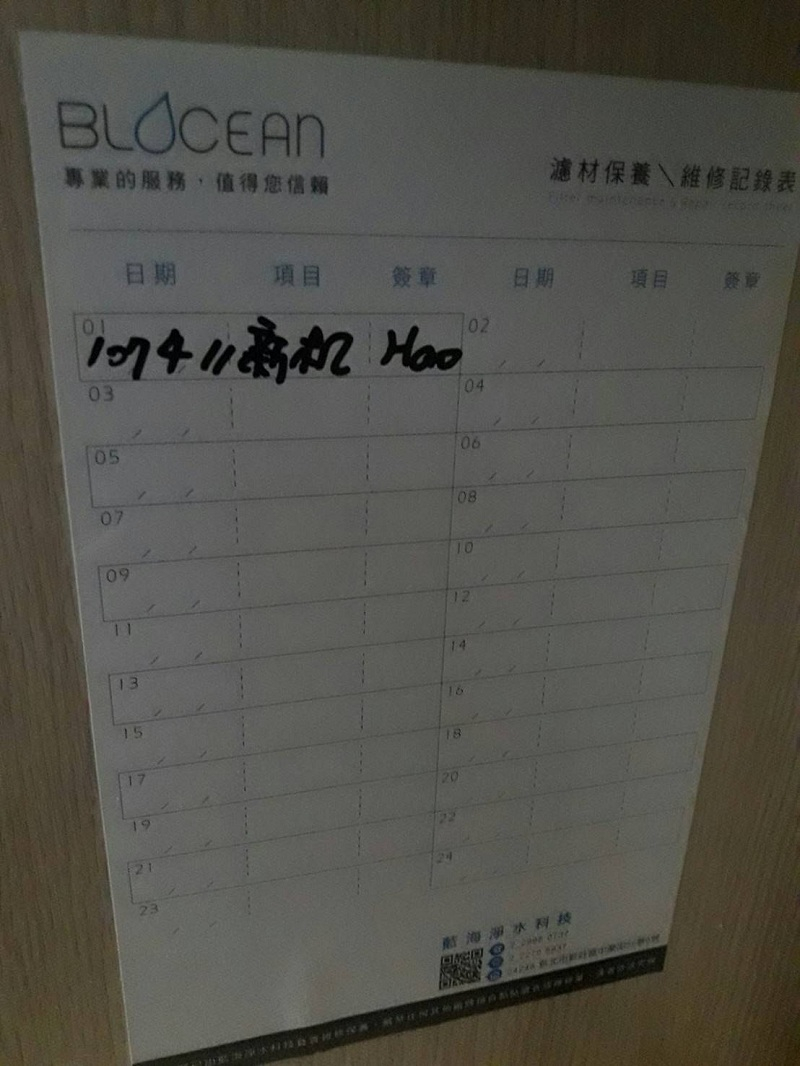 BLOCEAN
專業的服務，值得您信賴
濾材保養＼維修記錄表
日期 項目 簽章 日期 項目 簽章
01 107 4 11 新机 Hao 02
03 04
05 06
07 08
09 10
11 12
13 14
15 16
17 18
19 20
21 22
23 24
藍海淨水科技